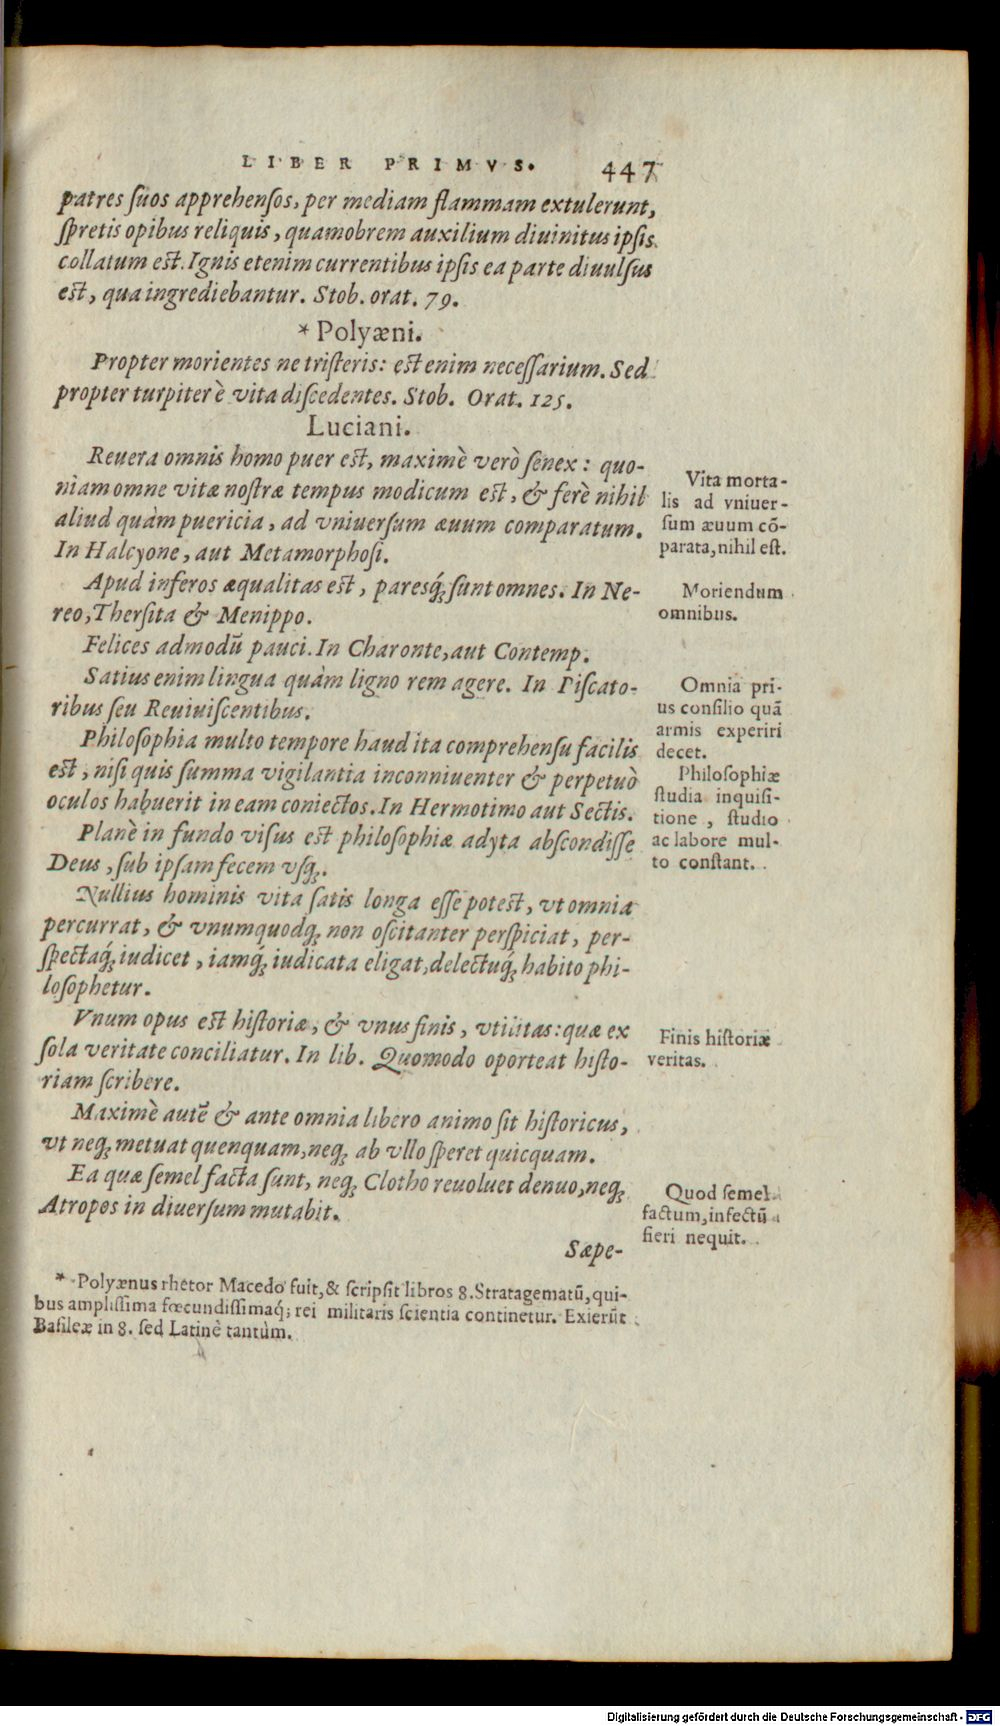 LIBER PRIMVS. 447
patres ſuos apprehenſos, per mediam flammam extulerunt,
ſpretis opibus reliquis, quamobrem auxilium diuinitus ipſis
collatum est. Ignis etenim currentibus ipſis ea parte diuulſus
est, qua ingrediebantur. Stob. orat. 79.
* Polyæni.
Propter morientes ne triſteris: est enim neceſſarium. Sed
propter turpiter è vita diſcedentes. Stob. Orat. 125.
Luciani.
Reuera omnis homo puer est, maximè verò ſenex: quo-
niam omne vitæ noſtræ tempus modicum est, & ferè nihil
aliud quàm puericia, ad vniuerſum æuum comparatum.
In Halcyone, aut Metamorphoſi.
Vita morta-
lis ad vniuer-
ſum æuum cō-
parata, nihil eſt.
Apud inferos æqualitas est, paresq́; ſunt omnes. In Ne-
reo, Therſita & Menippo.
Moriendum
omnibus.
Felices admodū pauci. In Charonte, aut Contemp.
Satius enim lingua quàm ligno rem agere. In Piſcato-
ribus ſeu Reuiuiſcentibus.
Omnia pri-
us conſilio quā
armis experiri
decet.
Philoſophia multo tempore haud ita comprehenſu facilis
est, niſi quis ſumma vigilantia inconniuenter & perpetuò
oculos habuerit in eam coniectos. In Hermotimo aut Sectis.
Philoſophiæ
ſtudia inquiſi-
tione, ſtudio
ac labore mul-
to conſtant.
Planè in fundo viſus est philoſophiæ adyta abſcondiſſe
Deus, ſub ipſam fecem vſq;.
Nullius hominis vita ſatis longa eſſe potest, vt omnia
percurrat, & vnumquodq; non oſcitanter perſpiciat, per-
ſpectaq́; iudicet, iamq́; iudicata eligat, delectuq́; habito phi-
loſophetur.
Vnum opus est hiſtoriæ, & vnus finis, vtilitas: quæ ex
ſola veritate conciliatur. In lib. Quomodo oporteat hiſto-
riam ſcribere.
Finis hiſtoriæ
veritas.
Maximè autē & ante omnia libero animo ſit hiſtoricus,
vt neq; metuat quenquam, neq; ab vllo ſperet quicquam.
Ea quæ ſemel facta ſunt, neq; Clotho reuoluet denuo, neq;
Atropos in diuerſum mutabit.
Quod ſemel
factum, infectū
fieri nequit.
Sæpe-
* Polyænus rhetor Macedo fuit, & ſcripſit libros 8. Stratagematū, qui-
bus ampliſſima fœcundiſſimaq́; rei militaris ſcientia continetur. Exierūt
Baſileæ in 8. ſed Latinè tantùm.
Digitalisierung gefördert durch die Deutsche Forschungsgemeinschaft - DFG